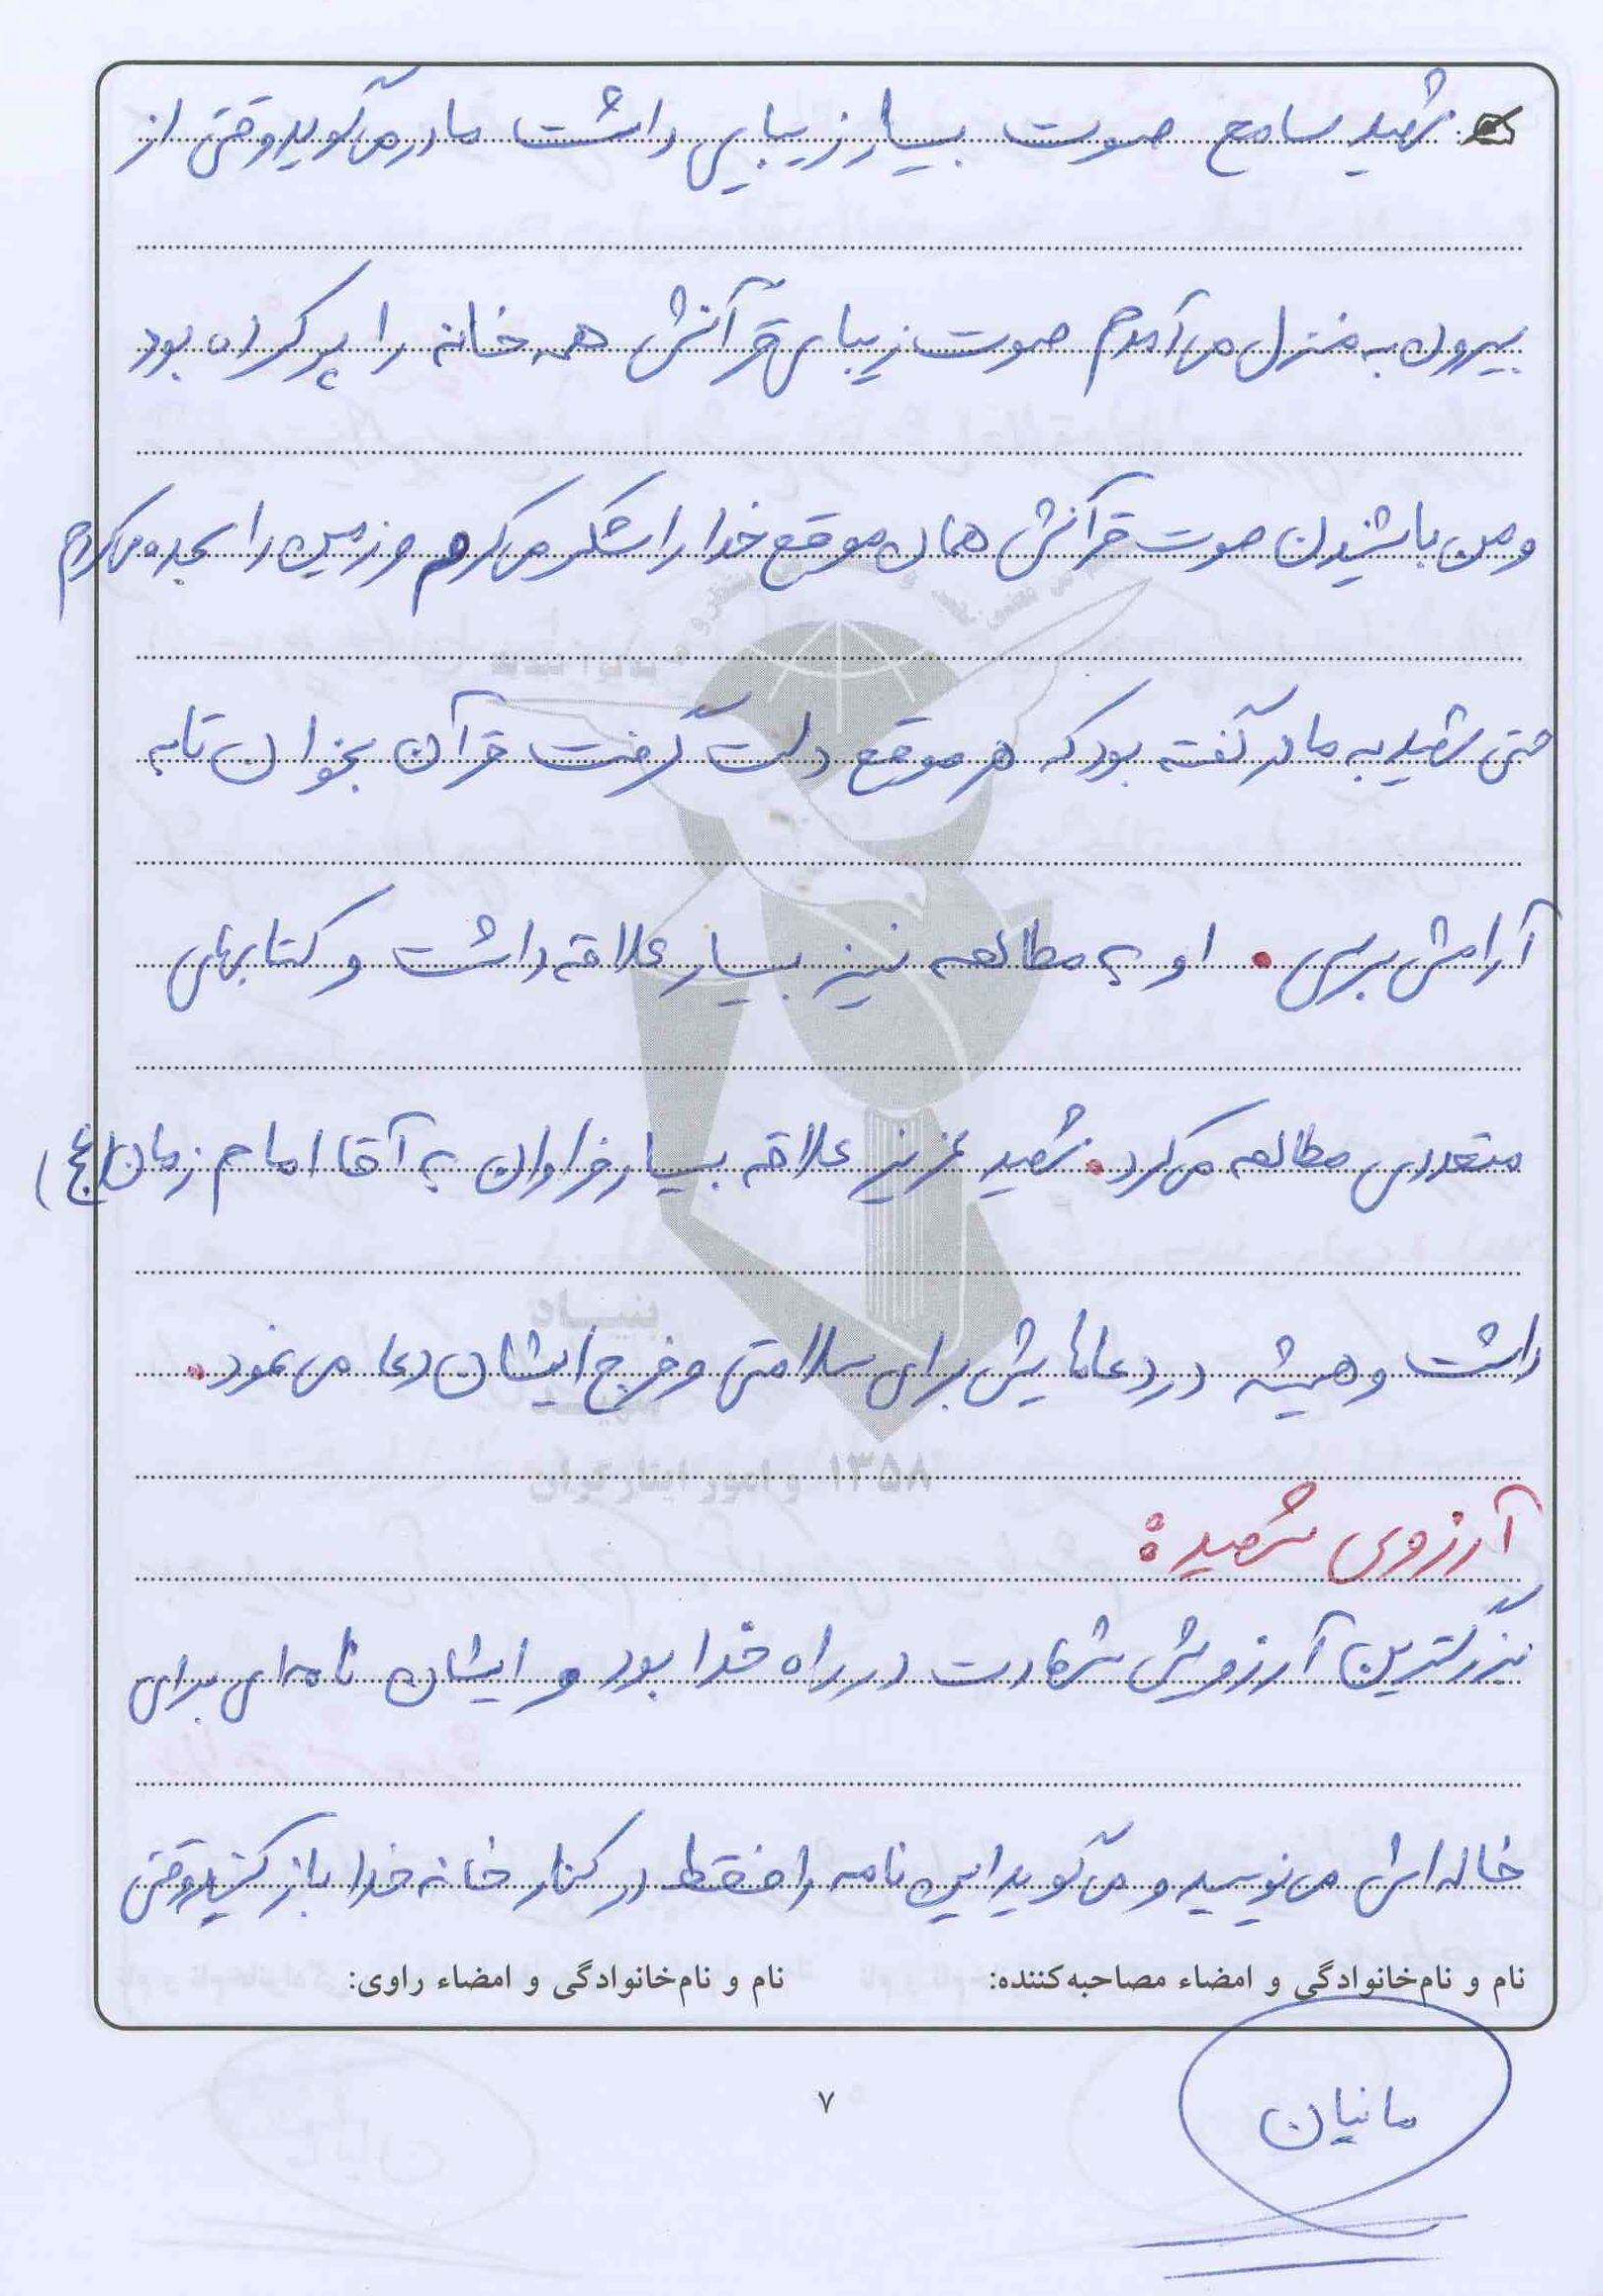 شهید سامع صوت بسیار زیبایی داشت مادر می‌گوید وقتی از
بیرون به منزل می‌آمدم صوت زیبای قرآنش همه خانه را پر کرده بود
و من با شنیدن صوت قرآنش همان موقع خدا را شکر می‌کردم و زمین را سجده می‌کردم
حتی شهید به مادر گفته بود که هر موقع دلت گرفت قرآن بخوان تا به
آرامش برسی. او به مطالعه نیز بسیار علاقه داشت و کتابهای
متعددی مطالعه می‌کرد. شهید عزیز علاقه بسیار فراوان به آقا امام زمان (عج)
داشت و همیشه در دعاهایش برای سلامتی و فرج ایشان دعا می‌نمود.
آرزوی شهید:
بزرگترین آرزویش شهادت در راه خدا بود و ایشان نامه‌ای برای
خاله‌اش می‌نویسد و می‌گوید این نامه را فقط در کنار خانه خدا باز کنید وقتی
نام و نام‌خانوادگی و امضاء مصاحبه‌کننده: نام و نام‌خانوادگی و امضاء راوی:
مانیان
۷
بنیاد
شهید
و امور ایثارگران ۱۳۵۸